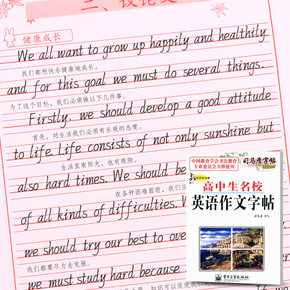 二、议论文
健康成长
We all want to grow up happily and healthily
我们都想快乐健康地成长,
and for this goal we must do several things.
为了这个目标,我们必须做以下几件事。
Firstly, we should develop a good attitude
首先,对生活我们必须有乐观的态度。
to life. Life consists of not only sunshine but
生活里有阳光,也有艰险。
also hard times. We should be
在各种困难面前,我们
of all kinds of difficulties.
we should try our best to over
我们都要尽力去克服。
we must study hard because
中国教育学会书法教育
专业委员会力荐使用
司马彦字帖
高中生名校
英语作文字帖
电子工业出版社